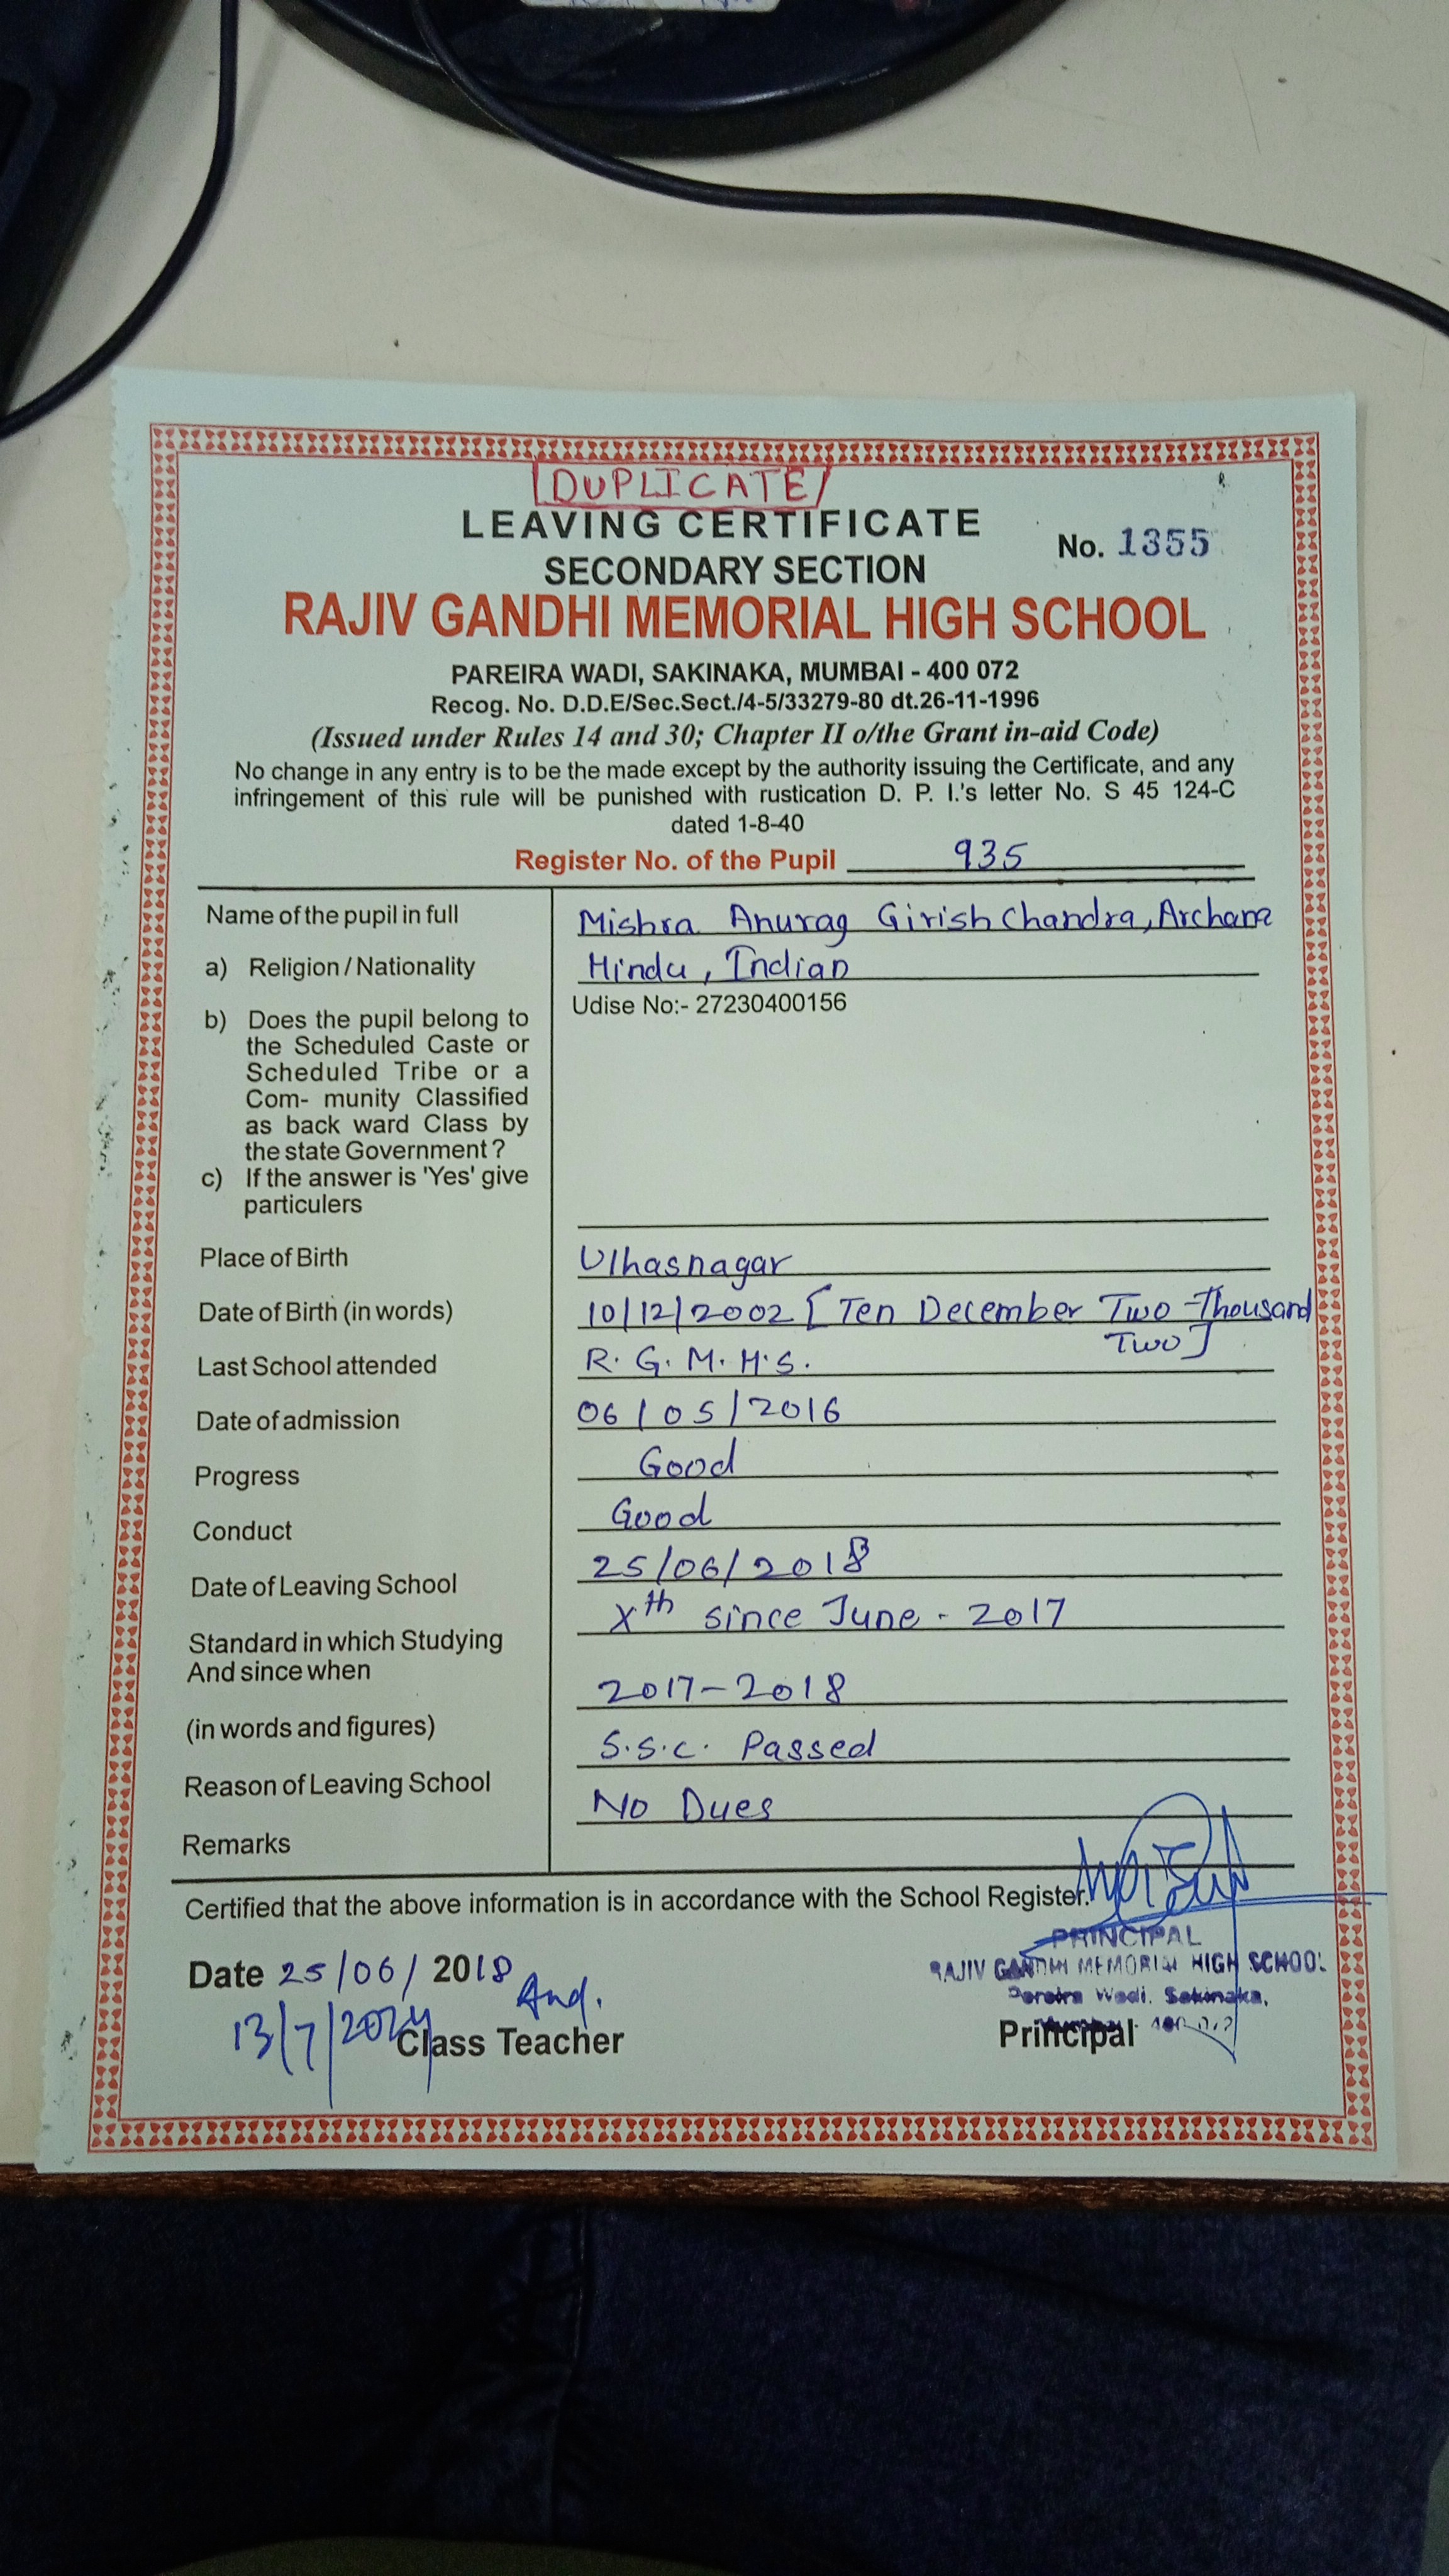 DUPLICATE
LEAVING CERTIFICATE
No. 1355
SECONDARY SECTION
RAJIV GANDHI MEMORIAL HIGH SCHOOL
PAREIRA WADI, SAKINAKA, MUMBAI - 400 072
Recog. No. D.D.E/Sec.Sect./4-5/33279-80 dt.26-11-1996
(Issued under Rules 14 and 30; Chapter II o/the Grant in-aid Code)
No change in any entry is to be the made except by the authority issuing the Certificate, and any
infringement of this rule will be punished with rustication D. P. I.'s letter No. S 45 124-C
dated 1-8-40
Register No. of the Pupil 935
Name of the pupil in full Mishra Anurag Girish Chandra, Archana
a) Religion / Nationality Hindu, Indian
Udise No:- 27230400156
b) Does the pupil belong to
the Scheduled Caste or
Scheduled Tribe or a
Com- munity Classified
as back ward Class by
the state Government ?
c) If the answer is 'Yes' give
particulers
Place of Birth Ulhasnagar
Date of Birth (in words) 10/12/2002 [Ten December Two-Thousand
Two]
Last School attended R. G. M. H. S.
Date of admission 06/05/2016
Progress Good
Conduct Good
Date of Leaving School 25/06/2018
Standard in which Studying Xth since June - 2017
And since when
(in words and figures) 2017-2018
Reason of Leaving School S.S.C. Passed
Remarks No Dues
Certified that the above information is in accordance with the School Register.
PRINCIPAL
RAJIV GANDHI MEMORIAL HIGH SCHOOL
Pereira Wadi, Sakinaka,
Date 25/06/2018
13/7/2024
Class Teacher
Principal